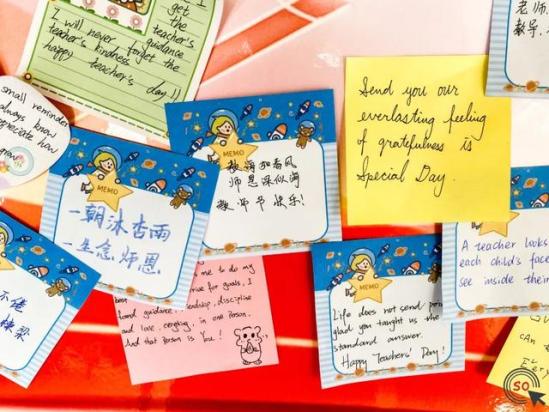 I
get
the
teacher's
guidance
I will never forget the
teacher's kindness
happy teacher's day!!
small reminder
always know
appreciate how
老师
教导
MEMO
教诲如春风
师恩深似海
教师节快乐!
Send you our
everlasting feeling
of gratefulness is
Special Day.
MEMO
一朝沐杏雨
一生念师恩
A teacher looks
each child's face
see inside their
me to do my
for goals, I
found guidance, friendship, discipline
and love, everything, in one person.
And that person is You!
MEMO
Life does not send
glad you taught us the
standard answer.
Happy Teachers' Day!
栋梁
SO